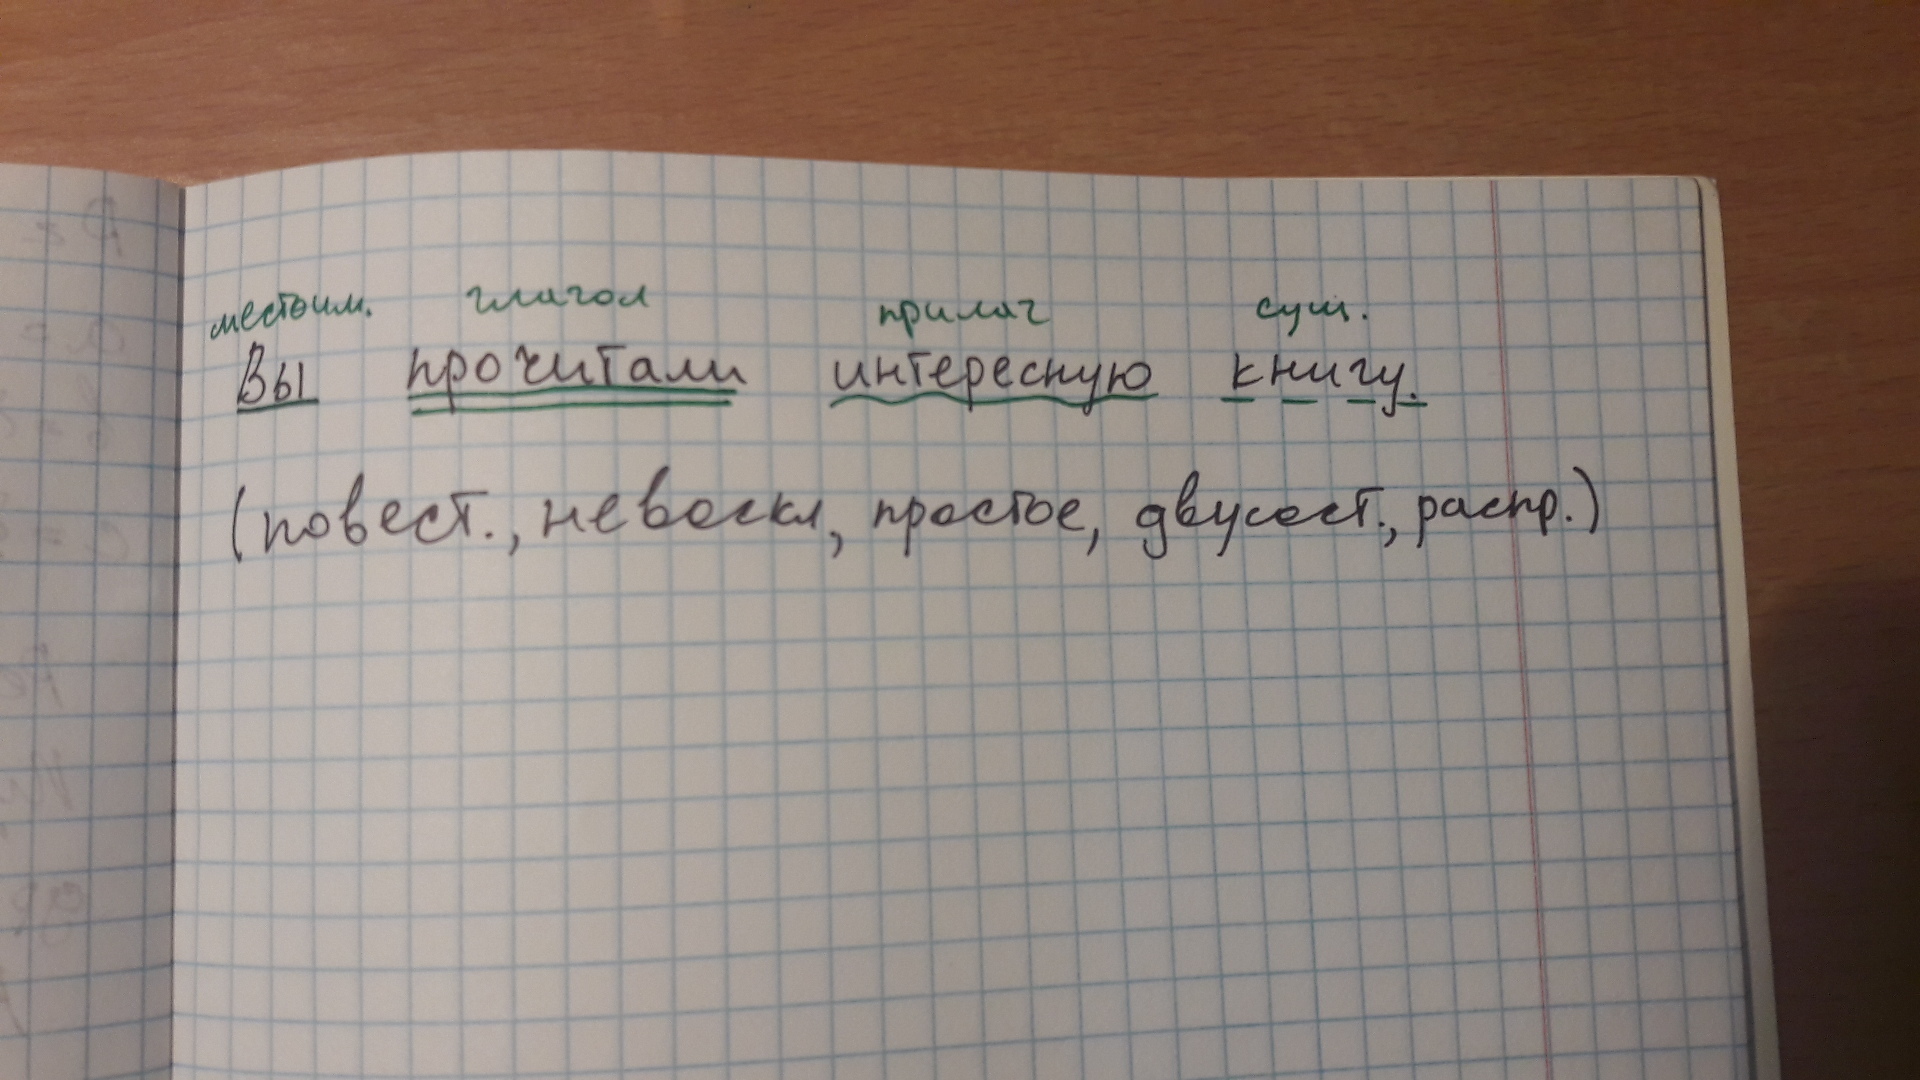 местоим. глагол прилаг сущ.
Вы прочитали интересную книгу.
(повест., невоскл, простое, двусост., распр.)